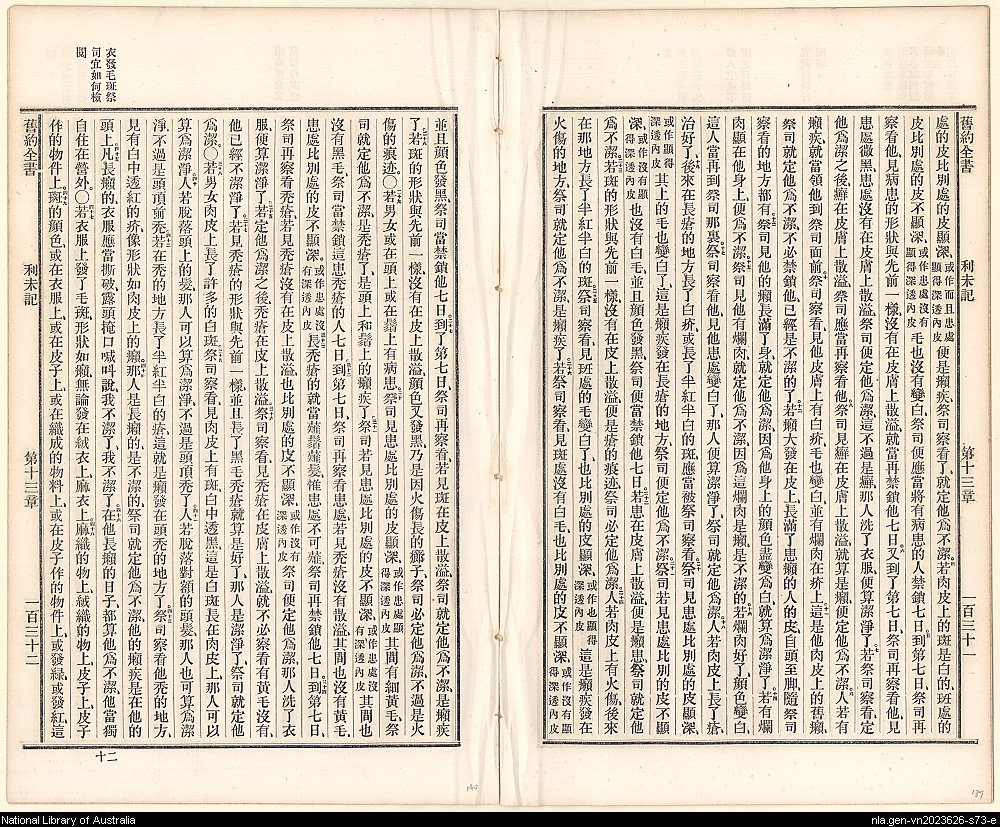 舊約全書　利未記　第十三章　一百三十一
處的皮比別處的皮顯深、或作而且患處顯得深透內皮便是癩疾祭司察看了、就定他爲不潔、若肉皮上的斑是白的、斑處的
皮比別處的皮不顯深、或作患處沒有顯得深透內皮毛也沒有變白、祭司便應當將有病患的人禁鎖七日、到第七日、祭司再
察看他、見病患的形狀與先前一樣、沒有在皮膚上散溢、就當再禁鎖他七日、又到了第七日、祭司再察看他、見
患處微黑、患處沒有在皮膚上散溢、祭司便定他爲潔、這不過是癬、那人洗了衣服、便算潔淨了、若祭司察看定
他爲潔之後、癬在皮膚上散溢、祭司應當再察看他、祭司見癬在皮膚上散溢、就算是癩、便定他爲不潔、人若有
癩疾、就當領他到祭司面前、祭司察看、見他皮膚上有白疥、毛也變白、並有爛肉在疥上、這是他肉皮上的舊癩、
祭司就定他爲不潔、不必禁鎖他、已經是不潔的了、若癩大發在皮上、長滿了患癩的人的皮、自頭至脚、隨祭司
察看的地方都有、祭司見他的癩長滿了身、就定他爲潔、因爲他身上的顔色盡變爲白、就算爲潔淨了、若有爛
肉顯在他身上、便爲不潔、祭司見他有爛肉、就定他爲不潔、因爲這爛肉是癩、是不潔的、若爛肉好了、顔色變白、
這人當再到祭司那裏、祭司察看他、見他患處變白了、那人便算潔淨了、祭司就定他爲潔、人若肉皮上長了瘡、
治好了、後來在長瘡的地方、長了白疥、或長了半紅半白的斑、應當被祭司察看、祭司見患處比別處的皮顯深、
或作顯得深透內皮其上的毛也變白了、這是癩疾發在長瘡的地方、祭司便定他爲不潔、祭司若見患處比別處的皮不顯
深、或作沒有顯得深透內皮也沒有白毛、並且顔色發黑、祭司便當禁鎖他七日、若患在皮膚上散溢、便是癩患、祭司就定他
爲不潔、若斑的形狀與先前一樣、沒有在皮膚上散溢、便是瘡的痕迹、祭司必定他爲潔、人若肉皮上有火傷、後來
在那地方長了半紅半白的斑、祭司察看、見斑處的毛變白了、也比別處的皮顯深、或作也顯得深透內皮這是火傷處發
火傷的地方、祭司就定他爲不潔、是癩疾了、若祭司察看、見斑處沒有白毛、也比別處的皮不顯深、或作沒有顯得深透內皮
139
並且顔色發黑、祭司當禁鎖他七日、到了第七日、祭司再察看、若見斑在皮上散溢、祭司必定他爲不潔、是癩疾
了、若斑的形狀與先前一樣、沒有在皮上散溢、顔色又發黑、乃是因火傷長的癤子、祭司必定他爲潔、不過是火
傷的痕迹、〇若男女或在頭上、或在鬍上有病患、祭司見患處比別處的皮顯深、或作患處顯得深透內皮其間有細黃毛、祭
司就定他爲不潔、是禿瘡了、是頭上和鬍上的癩疾了、祭司若見患處比別處的皮不顯深、或作患處沒有深透內皮其間也
沒有黑毛、祭司當禁鎖這患禿瘡的人七日、到第七日、祭司再察看患處、若見禿瘡沒有散溢、其間也沒有黃毛、
患處比別處的皮不顯深、或作患處沒有深透內皮長禿瘡的就當薙鬍薙髮、惟患處不可薙、祭司再禁鎖他七日、到第七日、
祭司再察看禿瘡、若見禿瘡沒有在皮上散溢、也比別處的皮不顯深、或作沒有深透內皮祭司便定他爲潔、那人洗了衣
服、便算潔淨了、若定他爲潔之後、禿瘡在皮上散溢、祭司察看、見禿瘡在皮膚上散溢、就不必察看有黃毛沒有、
他已經不潔淨了、若見禿瘡的形狀與先前一樣、並且長了黑毛、禿瘡就算是好了、那人是潔淨了、祭司就定他
爲潔、〇若男女肉皮上長了許多的白斑、祭司察看、見肉皮上有斑、白中透黑、這是白斑長在肉皮上、那人可以
算爲潔淨、人若脫落頭上的髮、那人可以算爲潔淨、不過是頭頂禿了、人若脫落對額的頭髮、那人也可算爲潔
淨、不過是頭頂前禿、若在禿的地方、長了半紅半白的瘡、這就是癩發在頭禿的地方了、祭司察看他禿的地方、
見有白中透紅的疥、像形狀如肉皮上的癩、那人是長癩的、是不潔的、祭司就定他爲不潔、他的癩疾是在他的
頭上、凡長癩的、衣服應當撕破、露頭掩口喊呌說、我不潔了、我不潔了、在他長癩的日子、都算他爲不潔、他當獨
自住在營外、〇若衣服上發了毛斑、形狀如癩、無論發在絨衣上、麻衣上、麻織的物上、絨織的物上、皮子上、皮子
作的物件上、斑的顔色、或在衣服上、或在皮子上、或在織成的物料上、或在皮子作的物件上、或發綠、或發紅、這
舊約全書　利未記　第十三章　一百三十二
衣發毛斑祭
司宜如何檢
閱
十二
140
National Library of Australia
nla.gen-vn2023626-s73-e